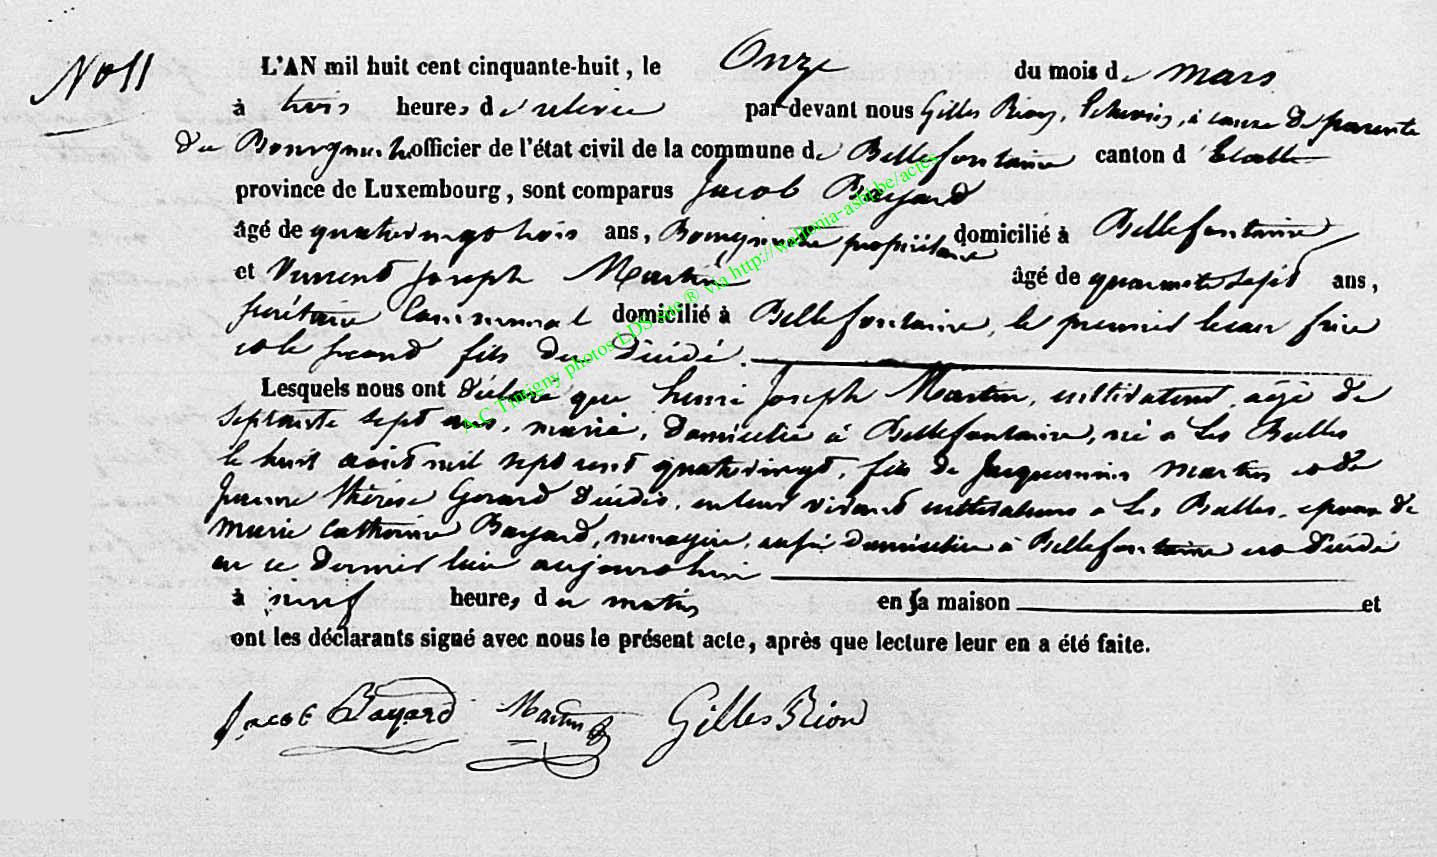 No 11
L'AN mil huit cent cinquante-huit, le Onze du mois de mars
à trois heures de relevée par-devant nous Gilles Rion, Echevin, à cause de parenté
du Bourgmestre officier de l'état civil de la commune de Bellefontaine canton d'Etalle
province de Luxembourg, sont comparus Jacob Bayard
âgé de quatrevingt trois ans, Bourgmestre propriétaire domicilié à Bellefontaine
et Vincent Joseph Martin âgé de quarante sept ans,
secrétaire Communal domicilié à Bellefontaine, le premier beau frère
et le second fils du Décédé.
Lesquels nous ont Déclaré que henri Joseph Martin, cultivateur, âgé de
septante sept ans, marié, Domicilié à Bellefontaine, né à Les Bulles
le huit août mil sept cent quatrevingt, fils de Jacquemin Martin et de
Jeanne thérèse Gerard Décédés, en leur vivant cultivateurs à Les Bulles, epoux de
Marie Catherine Bayard, menagère, aussi Domiciliée à Bellefontaine est Décédé
en ce Dernier lieu aujourd'hui
à neuf heures du matin en sa maison et
ont les déclarants signé avec nous le présent acte, après que lecture leur en a été faite.
Jacob Bayard Martin Gilles Rion
A.C Tintigny photos LDS site ® via http://wallonia-asbl.be/actes